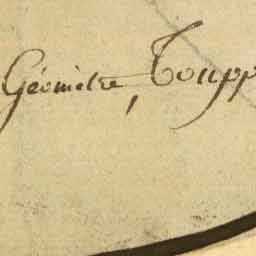 Géomètre, Toupp